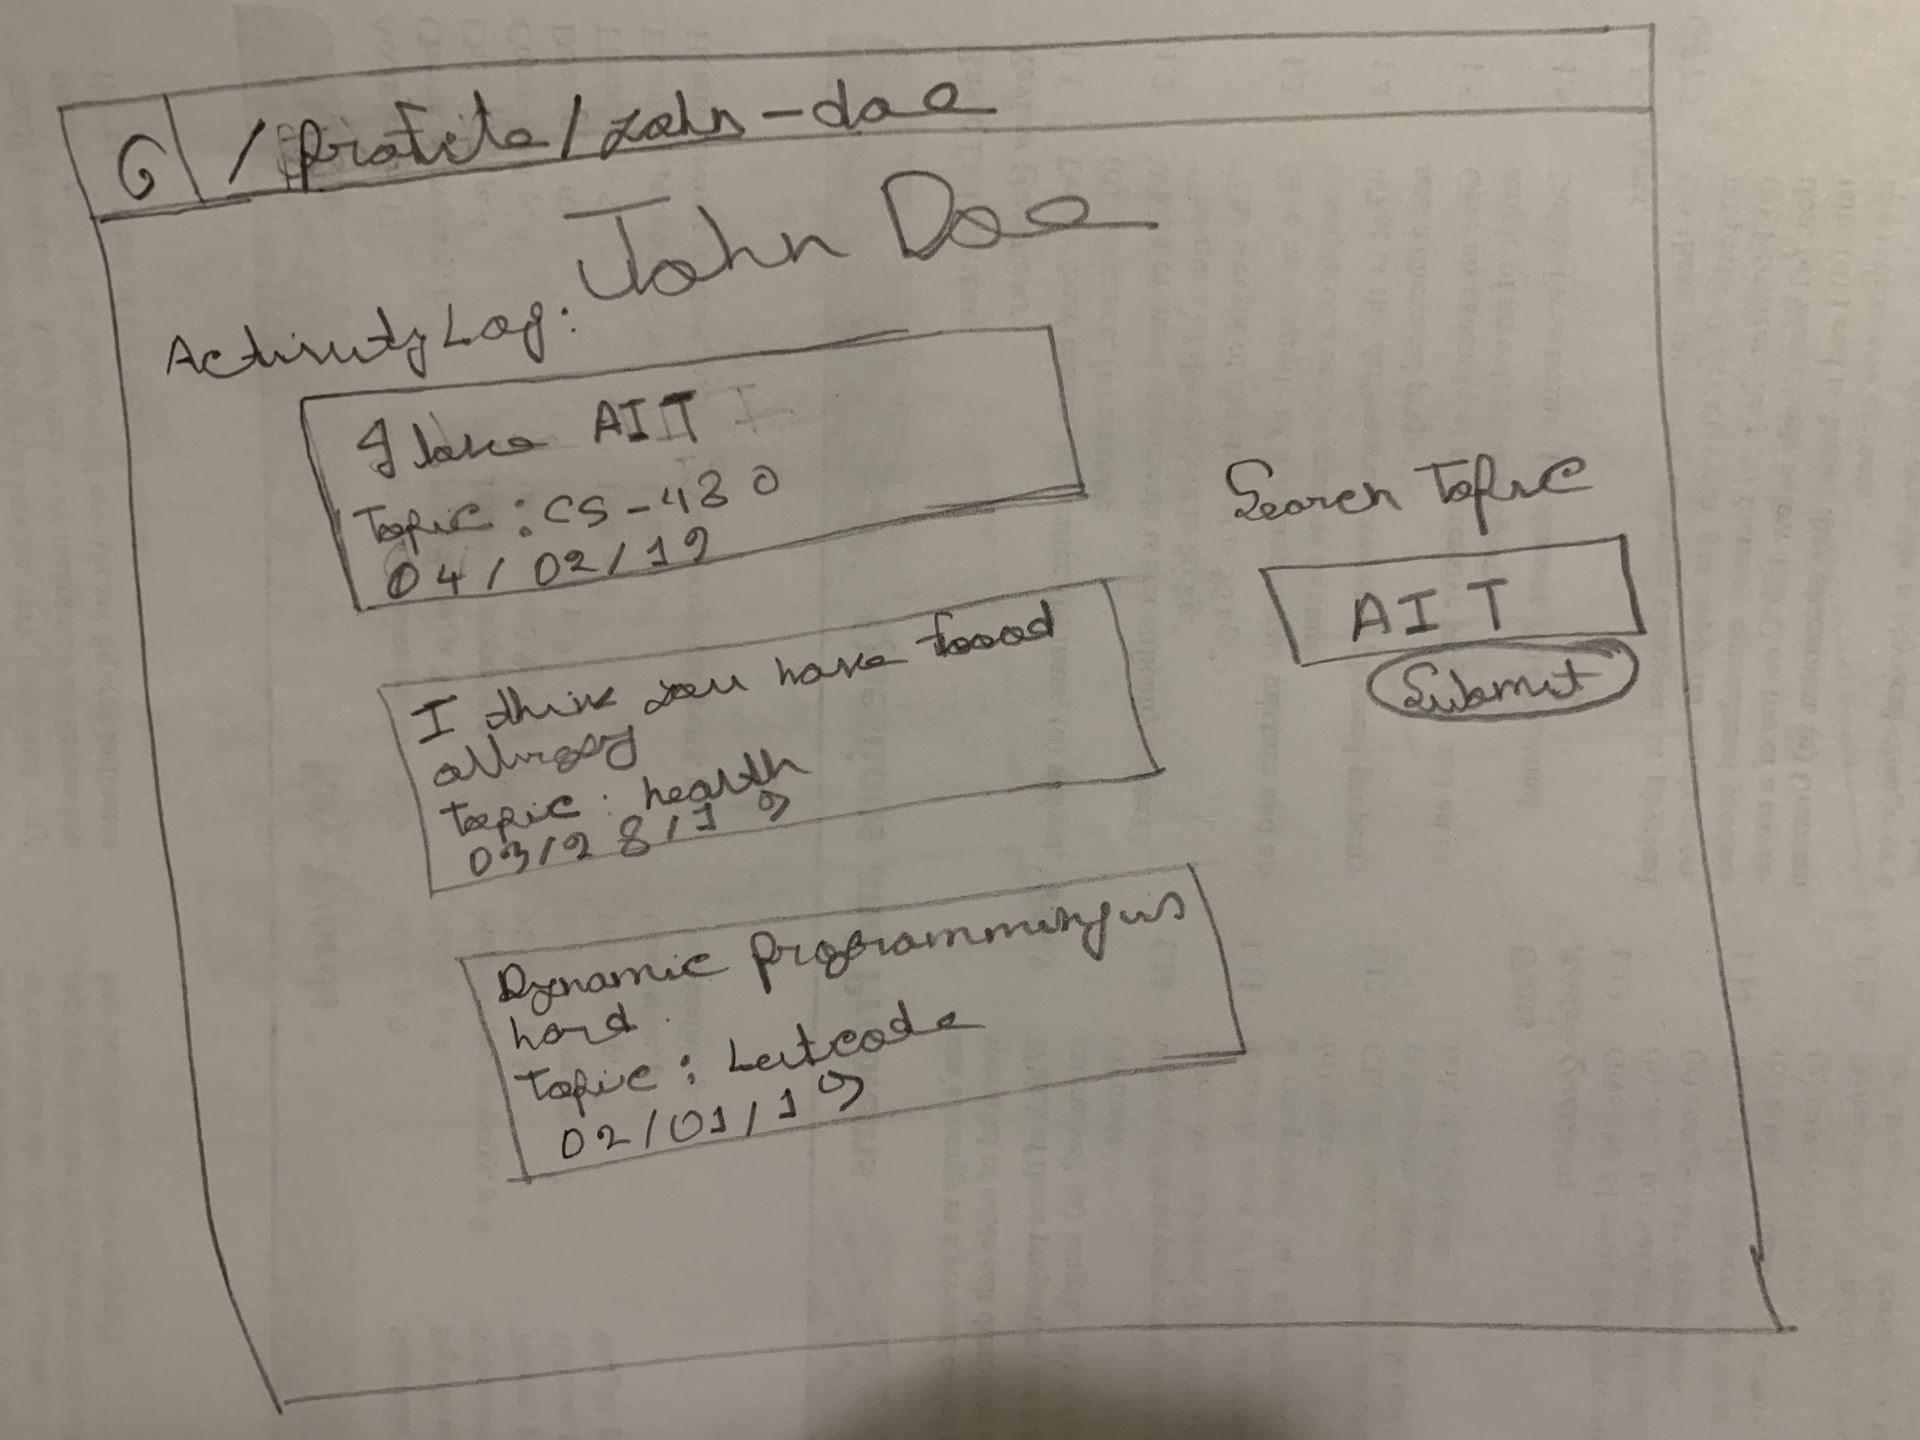 /profile/john-doe
John Doe
Activity Log:
I like AIT
Topic: CS-480
04/02/19
I think you have food
allergy
topic: health
03/28/19
Dynamic Programming is
hard.
Topic: Leetcode
02/01/19
Search Topic
AIT
Submit